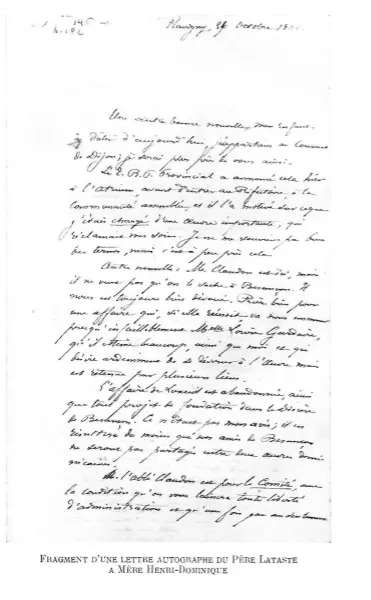 Flavigny, 26 Octobre
Une autre bonne nouvelle, mon enfant.
à dater d'aujourd'hui, j'appartiens au couvent
de Dijon; je serai plus près de vous ainsi.
Le T. R. P. Provincial a annoncé cela hier
à l'atrium, avant d'entrer au Réfectoire, à la
Communauté assemblée, et il l'a motivé sur ce que
j'étais chargé d'une œuvre importante, qui
réclamait mes soins. Je ne me souviens pas bien
des termes, mais c'est à peu près cela.
Autre nouvelle: M. Claudon est ici, mais
il ne veut pas qu'on le sache à Besançon. Il
nous est toujours bien dévoué. Priez bien pour
une affaire qui, si elle réussit, va nous amener
presqu'infailliblement Melle Louise
qu'il aime beaucoup, ainsi que moi et qui
désire ardemment de se dévouer à l'Œuvre mais
est retenue par plusieurs liens.
L'affaire de Luxeuil est abandonnée, ainsi
que tout projet de fondation dans le Diocèse
de Besançon. Ce n'était pas mon avis; il en
résultera du moins que nos amis de Besançon
ne seront pas partagés entre deux œuvres domi-
nicaines.
M. l'abbé Claudon est pour le Comité, avec
la condition qu'on vous laissera toute liberté
d'administration et qu'un fois par an seulement
FRAGMENT D'UNE LETTRE AUTOGRAPHE DU PÈRE LATASTE
A MÈRE HENRI-DOMINIQUE